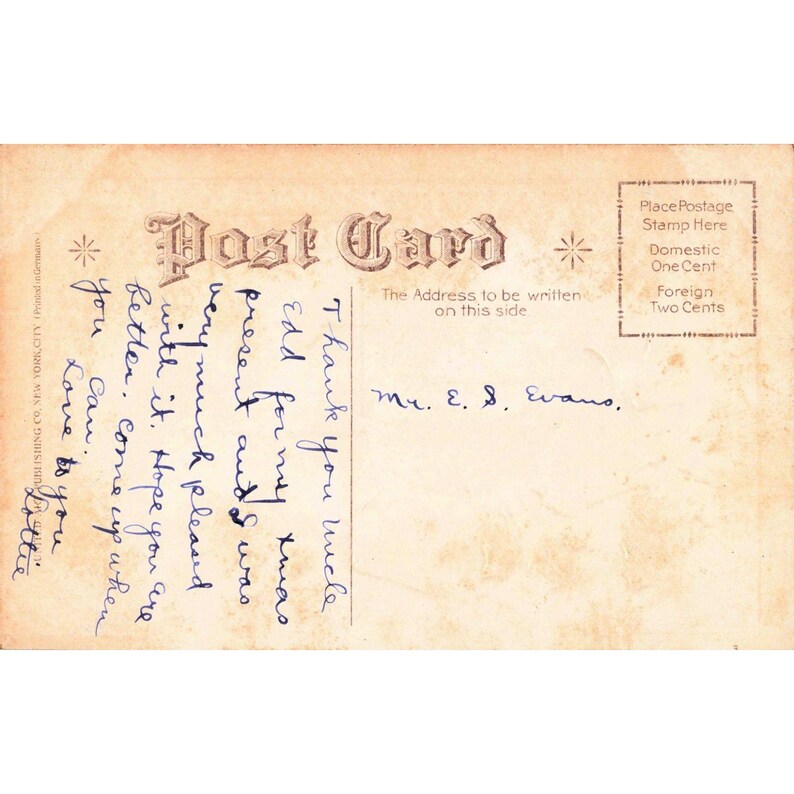 Post Card
Place Postage
Stamp Here
Domestic
One Cent
Foreign
Two Cents
The Address to be written
on this side
Mr. E. S. Evans.
Thank you Uncle
Edd for my Xmas
present and I was
very much pleased
with it. Hope you are
better. Come up when
you can.
Love to you
Lottie
PUBLISHING CO., NEW YORK, CITY (Printed in Germany)